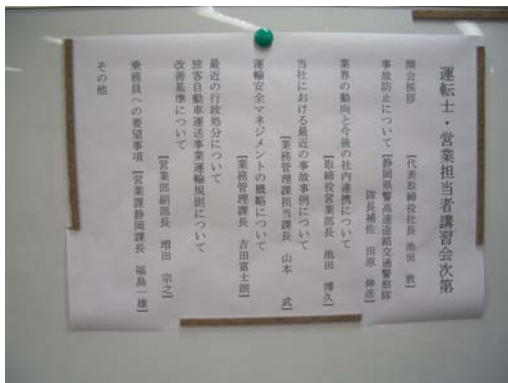 運転士・営業担当者講習会次第
開会挨拶　［代表取締役社長　池田　敦］
事故防止について［静岡県警高速道路交通警察隊
隊長補佐　田原　伸彦］
業界の動向と今後の社内連携について
［取締役営業部長　池田　博久］
当社における最近の事故事例について
［業務管理課担当課長　山本　武］
運輸安全マネジメントの概略について
［業務管理課長　吉田富士朗］
最近の行政処分について
旅客自動車運送事業運輸規則について
改善基準について
［営業部副部長　増田　宗之］
乗務員への要望事項［営業課静岡課長　福島一雄］
その他